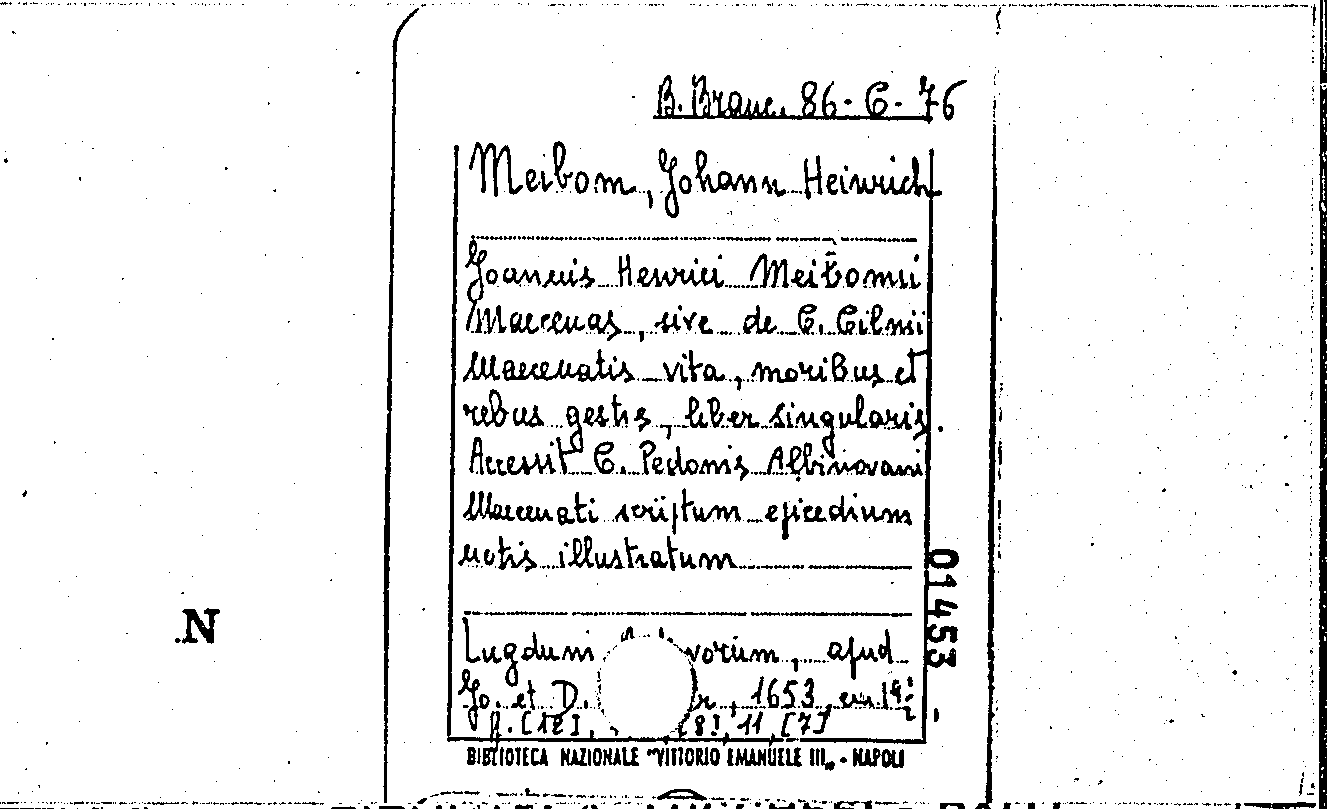 B. Branc. 86-C-76
Meibom, Johann Heinrich
Joannis Henrici Meibomii
Maecenas, sive de C. Cilnii
Maecenatis vita, moribus et
rebus gestis, liber singularis.
Accessit C. Pedonis Albinovani
Maecenati scriptum epicedium
notis illustratum
01453
N
Lugduni vorum, apud
Jo. et D. r, 1653
p. [12], [8], 11, [7]
BIBLIOTECA NAZIONALE "VITTORIO EMANUELE III„ - NAPOLI